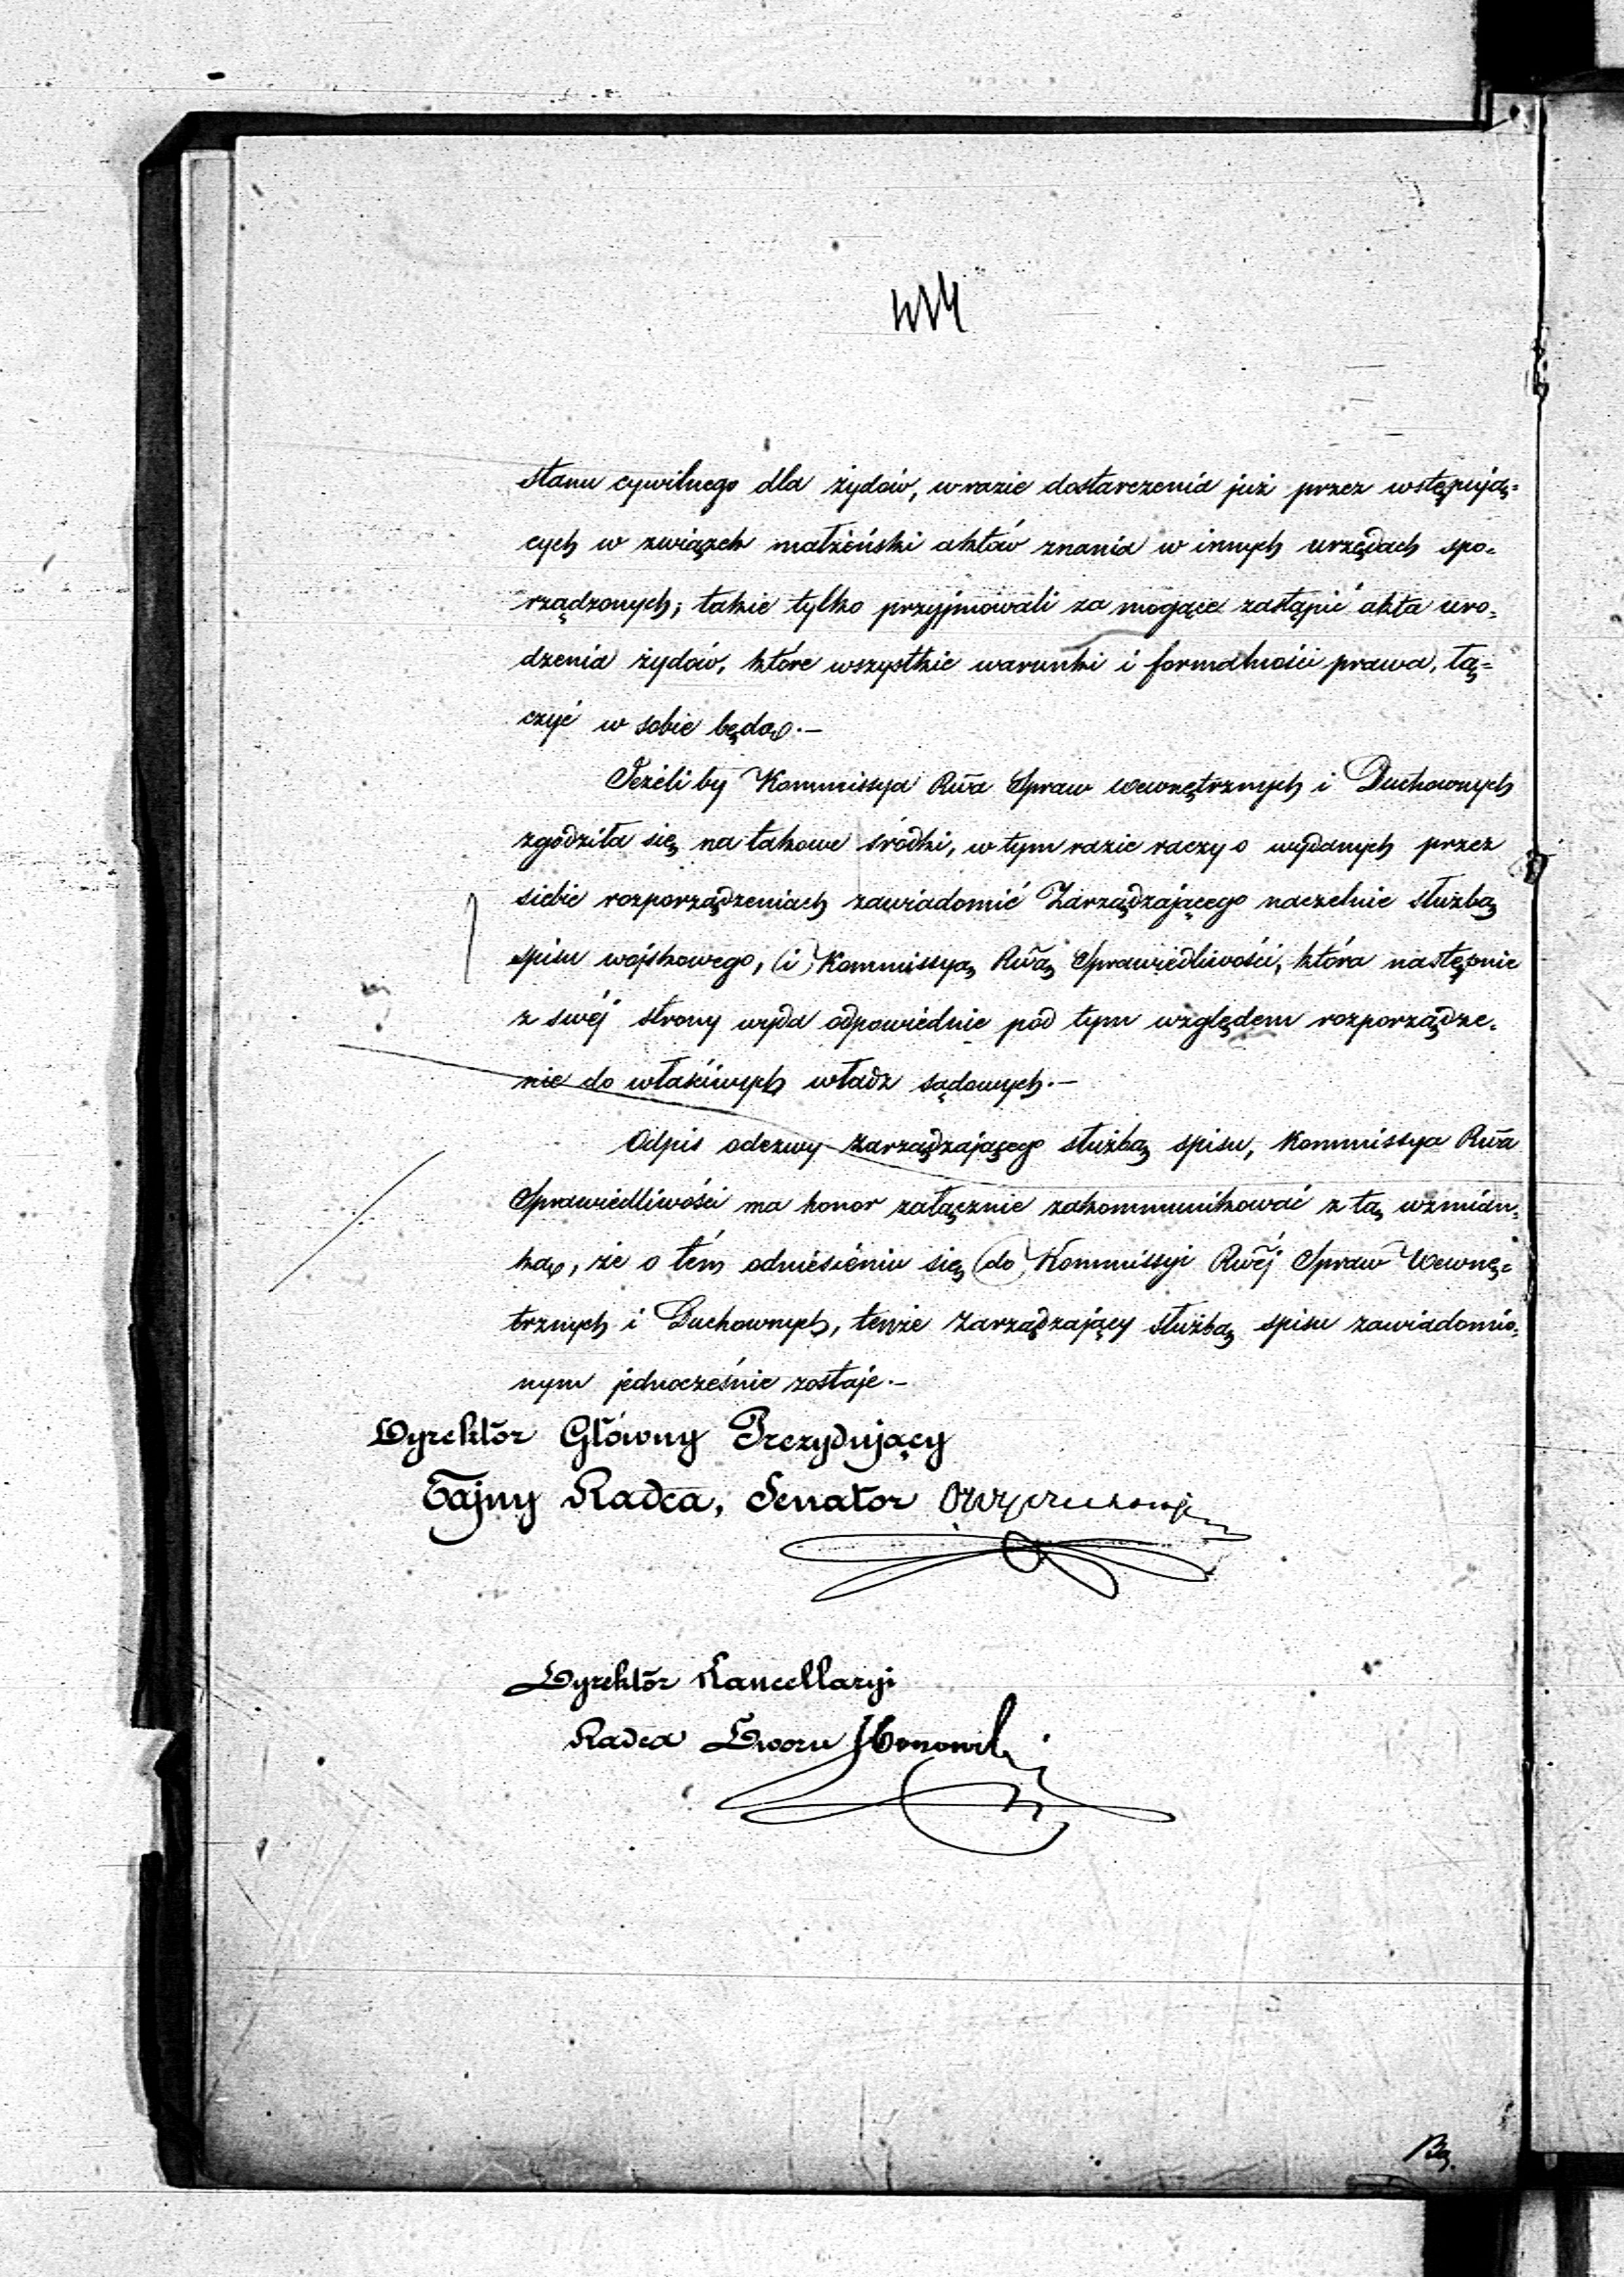 stanu cywilnego dla żydów, w razie dostarczenia już przez wstępują=
cych w związek małżeński aktów znania w innych urzędach spo=
rządzonych; takie tylko przyjmowali za mogące zastąpić akta uro=
dzenia żydów, które wszystkie warunki i formalności prawa, łą=
czyć w sobie będą.—
Jeżeli by Kommissya Rwa Spraw Wewnętrznych i Duchownych
zgodziła się na takowe środki, w tym razie raczy o wydanych przez
siebie rozporządzeniach zawiadomić Zarządzającego naczelnie służbą
spisu wojskowego, (i) Kommissyą Rwą Sprawiedliwości, która następnie
z swéj strony wyda odpowiednie pod tym względem rozporządze=
nie do właściwych władz sądowych.—
Odpis odezwy Zarządzającego służbą spisu, Kommissya Rwa
Sprawiedliwości ma honor załącznie zakommunikować z tą wzmian=
ką, że o tém odniesieniu się (do) Kommissyi Rwéj Spraw Wewnę=
trznych i Duchownych, tenże Zarządzający służbą spisu zawiadomio=
nym jednocześnie zostaje.—
Dyrektor Główny Prezydujący
Tajny Radca, Senator
Dyrektor Kancellaryi
Radca Dworu